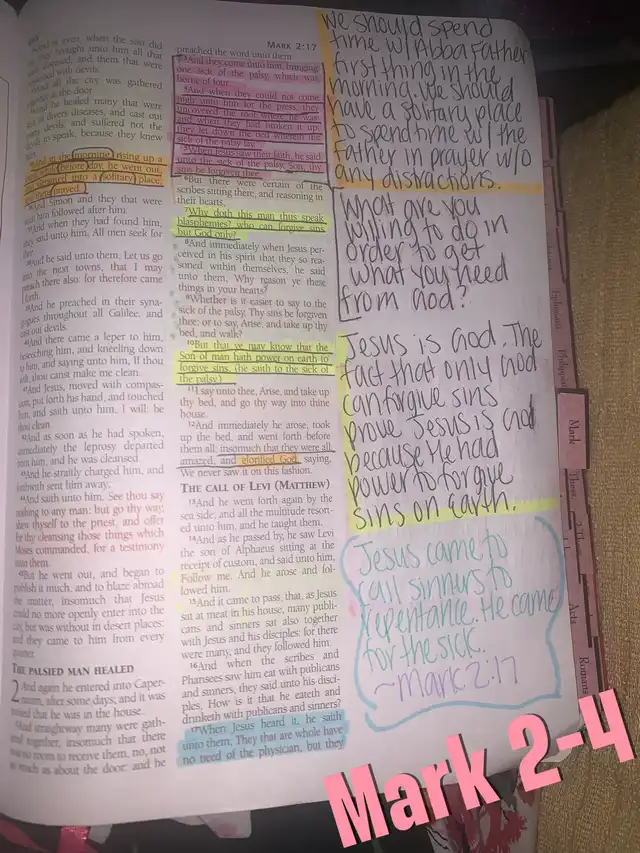 MARK 2:17
even, when the sun did
brought unto him all that
and them that were
with devils.
all the city was gathered
the door.
he healed many that were
of divers diseases, and cast out
devils; and suffered not the
to speak, because they knew
And in the morning, rising up a
before day, he went out,
into a solitary place,
prayed.
Simon and they that were
him followed after him.
And when they had found him,
they said unto him, All men seek for
And he said unto them, Let us go
the next towns, that I may
preach there also: for therefore came
forth.
And he preached in their syna-
gogues throughout all Galilee, and
cast out devils.
And there came a leper to him,
beseeching him, and kneeling down
to him, and saying unto him, If thou
wilt, thou canst make me clean.
And Jesus, moved with compas-
sion, put forth his hand, and touched
him, and saith unto him, I will; be
thou clean.
And as soon as he had spoken,
immediately the leprosy departed
from him, and he was cleansed.
And he straitly charged him, and
forthwith sent him away;
And saith unto him, See thou say
nothing to any man: but go thy way,
shew thyself to the priest, and offer
for thy cleansing those things which
Moses commanded, for a testimony
unto them.
But he went out, and began to
publish it much, and to blaze abroad
the matter, insomuch that Jesus
could no more openly enter into the
city, but was without in desert places:
and they came to him from every
quarter.
THE PALSIED MAN HEALED
2 And again he entered into Caper-
naum, after some days; and it was
noised that he was in the house.
And straightway many were gath-
ered together, insomuch that there
was no room to receive them, no, not
so much as about the door: and he
preached the word unto them.
And they come unto him, bringing
one sick of the palsy, which was
borne of four.
And when they could not come
nigh unto him for the press, they
uncovered the roof where he was:
and when they had broken it up,
they let down the bed wherein the
sick of the palsy lay.
When Jesus saw their faith, he said
unto the sick of the palsy, Son, thy
sins be forgiven thee.
6 But there were certain of the
scribes sitting there, and reasoning in
their hearts,
7 Why doth this man thus speak
blasphemies? who can forgive sins
but God only?
8 And immediately when Jesus per-
ceived in his spirit that they so rea-
soned within themselves, he said
unto them, Why reason ye these
things in your hearts?
9 Whether is it easier to say to the
sick of the palsy, Thy sins be forgiven
thee; or to say, Arise, and take up thy
bed, and walk?
10 But that ye may know that the
Son of man hath power on earth to
forgive sins, (he saith to the sick of
the palsy,)
11 I say unto thee, Arise, and take up
thy bed, and go thy way into thine
house.
12 And immediately he arose, took
up the bed, and went forth before
them all; insomuch that they were all
amazed, and glorified God, saying,
We never saw it on this fashion.
THE CALL OF LEVI (MATTHEW)
13 And he went forth again by the
sea side; and all the multitude resort-
ed unto him, and he taught them.
14 And as he passed by, he saw Levi
the son of Alphaeus sitting at the
receipt of custom, and said unto him,
Follow me. And he arose and fol-
lowed him.
15 And it came to pass, that, as Jesus
sat at meat in his house, many publi-
cans and sinners sat also together
with Jesus and his disciples: for there
were many, and they followed him.
16 And when the scribes and
Pharisees saw him eat with publicans
and sinners, they said unto his disci-
ples, How is it that he eateth and
drinketh with publicans and sinners?
17 When Jesus heard it, he saith
unto them, They that are whole have
no need of the physician, but they
We should spend
time w/ Abba Father
first thing in the
morning. We should
have a solitary place
to spend time w/ the
Father in prayer w/o
any distractions.
What are you
willing to do in
order to get
what you need
from God?
Jesus is God. The
fact that only God
can forgive sins
prove Jesus is God
because He had
power to forgive
sins on Earth.
Jesus came to
call sinners to
repentance. He came
for the sick.
~Mark 2:17
Mark
Acts
Romans
Mark 2-4